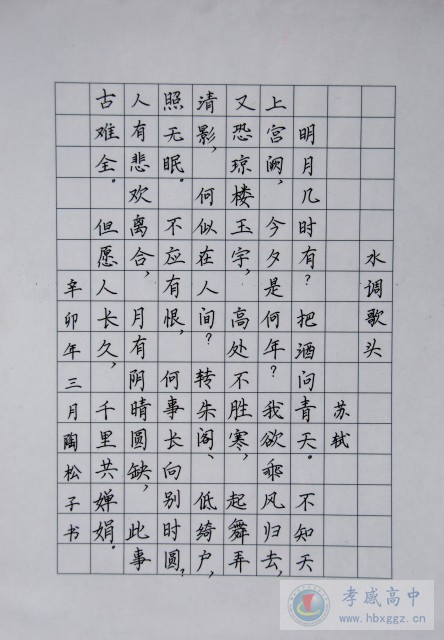 水调歌头
苏轼
明月几时有?把酒问青天。不知天
上宫阙,今夕是何年?我欲乘风归去,
又恐琼楼玉宇,高处不胜寒,起舞弄
清影,何似在人间?转朱阁、低绮户,
照无眠。不应有恨,何事长向别时圆?
人有悲欢离合,月有阴晴圆缺,此事
古难全。但愿人长久,千里共婵娟。
辛卯年三月陶松子书
孝感高中
www.hbxggz.cn